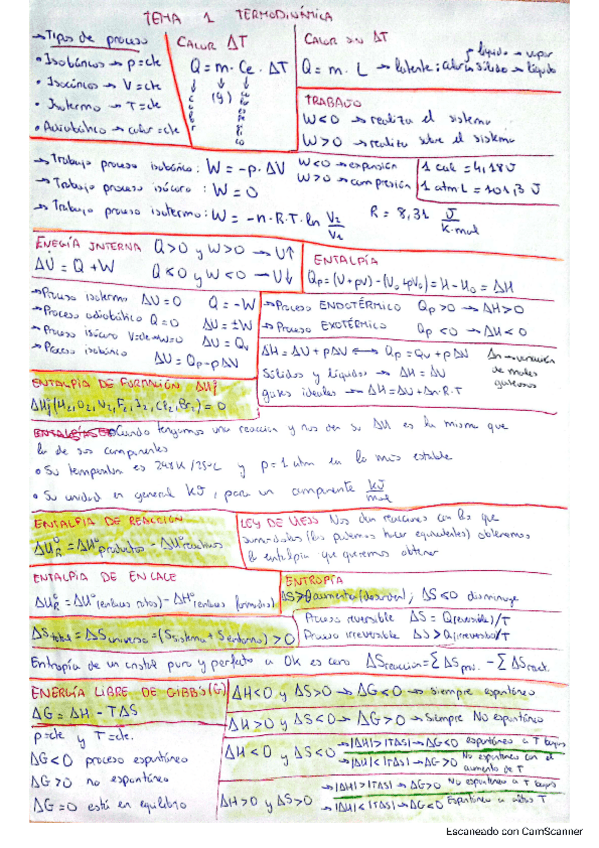 TEMA 1 TERMODINÁMICA
→Tipos de proceso
• Isobáricos → p=cte
• Isocóricos → V=cte
• Isotermo → T=cte
• Adiabático → calor=cte
CALOR ΔT
Q = m · Ce · ΔT
(g)
CALOR SIN ΔT
líquido → vapor
Q = m · L → latente; calor sólido → líquido
TRABAJO
W<0 → realiza el sistema
W>0 → realiza sobre el sistema
→ Trabajo proceso isobárico: W = -p·ΔV
→ Trabajo proceso isócoro: W = 0
→ Trabajo proceso isotermo: W = -n·R·T·ln V₂/V₁
W<0 → expansión
W>0 → compresión
R = 8,31 J/K·mol
1 cal = 4,18 J
1 atm L = 101,3 J
ENEGÍA INTERNA Q>0 y W>0 → U↑
ΔU = Q + W Q<0 y W<0 → U↓
ENTALPÍA
Qp = (U + pV) - (U₀ + pV₀) = H - H₀ = ΔH
→Proceso isotermo ΔU=0 Q = -W
→Proceso adiabático Q=0 ΔU = ±W
→Proceso isócoro V=cte→W=0 ΔU = Qv
→Proceso isobárico ΔU = Qp - pΔV
→Proceso ENDOTÉRMICO Qp>0 → ΔH>0
→Proceso EXOTÉRMICO Qp<0 → ΔH<0
ΔH = ΔU + pΔV ⟷ Qp = Qv + pΔV
Δn → variación de moles gaseosos
Sólidos y líquidos → ΔH = ΔU
gases ideales → ΔH = ΔU + Δn·R·T
ENTALPÍA DE FORMACIÓN ΔHf
ΔHf (H₂, O₂, N₂, F₂, I₂, Cl₂, Br₂) = 0
Cuando tengamos una reacción y nos den su ΔH es la misma que
la de sus componentes
• Su temperatura es 298K/25ºC y p=1 atm en lo más estable
• Su unidad en general kJ, para un componente kJ/mol
ENTALPIA DE REACCIÓN
ΔHR° = ΔH° productos - ΔH° reactivos
LEY DE HESS Nos dan reacciones con las que
sumándolas (las podemos hacer equivalentes) obtenemos
la entalpía que queremos obtener
ENTALPIA DE ENLACE
ΔHR° = ΔH° (enlaces rotos) - ΔH° (enlaces formados)
ENTROPÍA
ΔS>0 aumenta (desorden); ΔS<0 disminuye
ΔS total = ΔS universo = (S sistema + S entorno) > 0
Proceso reversible ΔS = Q(reversible)/T
Proceso irreversible ΔS > Q(irreversible)/T
Entropía de un cristal puro y perfecto a 0K es cero ΔS reacción = Σ ΔS pro. - Σ ΔS react.
ENERGÍA LIBRE DE GIBBS (G)
ΔG = ΔH - TΔS
p=cte y T=cte.
ΔG<0 proceso espontáneo
ΔG>0 no espontáneo
ΔG=0 está en equilibrio
ΔH<0 y ΔS>0 → ΔG<0 → Siempre espontáneo
ΔH>0 y ΔS<0 → ΔG>0 → Siempre No espontáneo
ΔH<0 y ΔS<0 → |ΔH|>|TΔS| → ΔG<0 espontáneo a T bajas
→ |ΔH|<|TΔS| → ΔG>0 No espontáneo con el aumento de T
ΔH>0 y ΔS>0 → |ΔH|>|TΔS| → ΔG>0 No espontáneo a T bajas
→ |ΔH|<|TΔS| → ΔG<0 Espontáneo a altas T
Escaneado con CamScanner